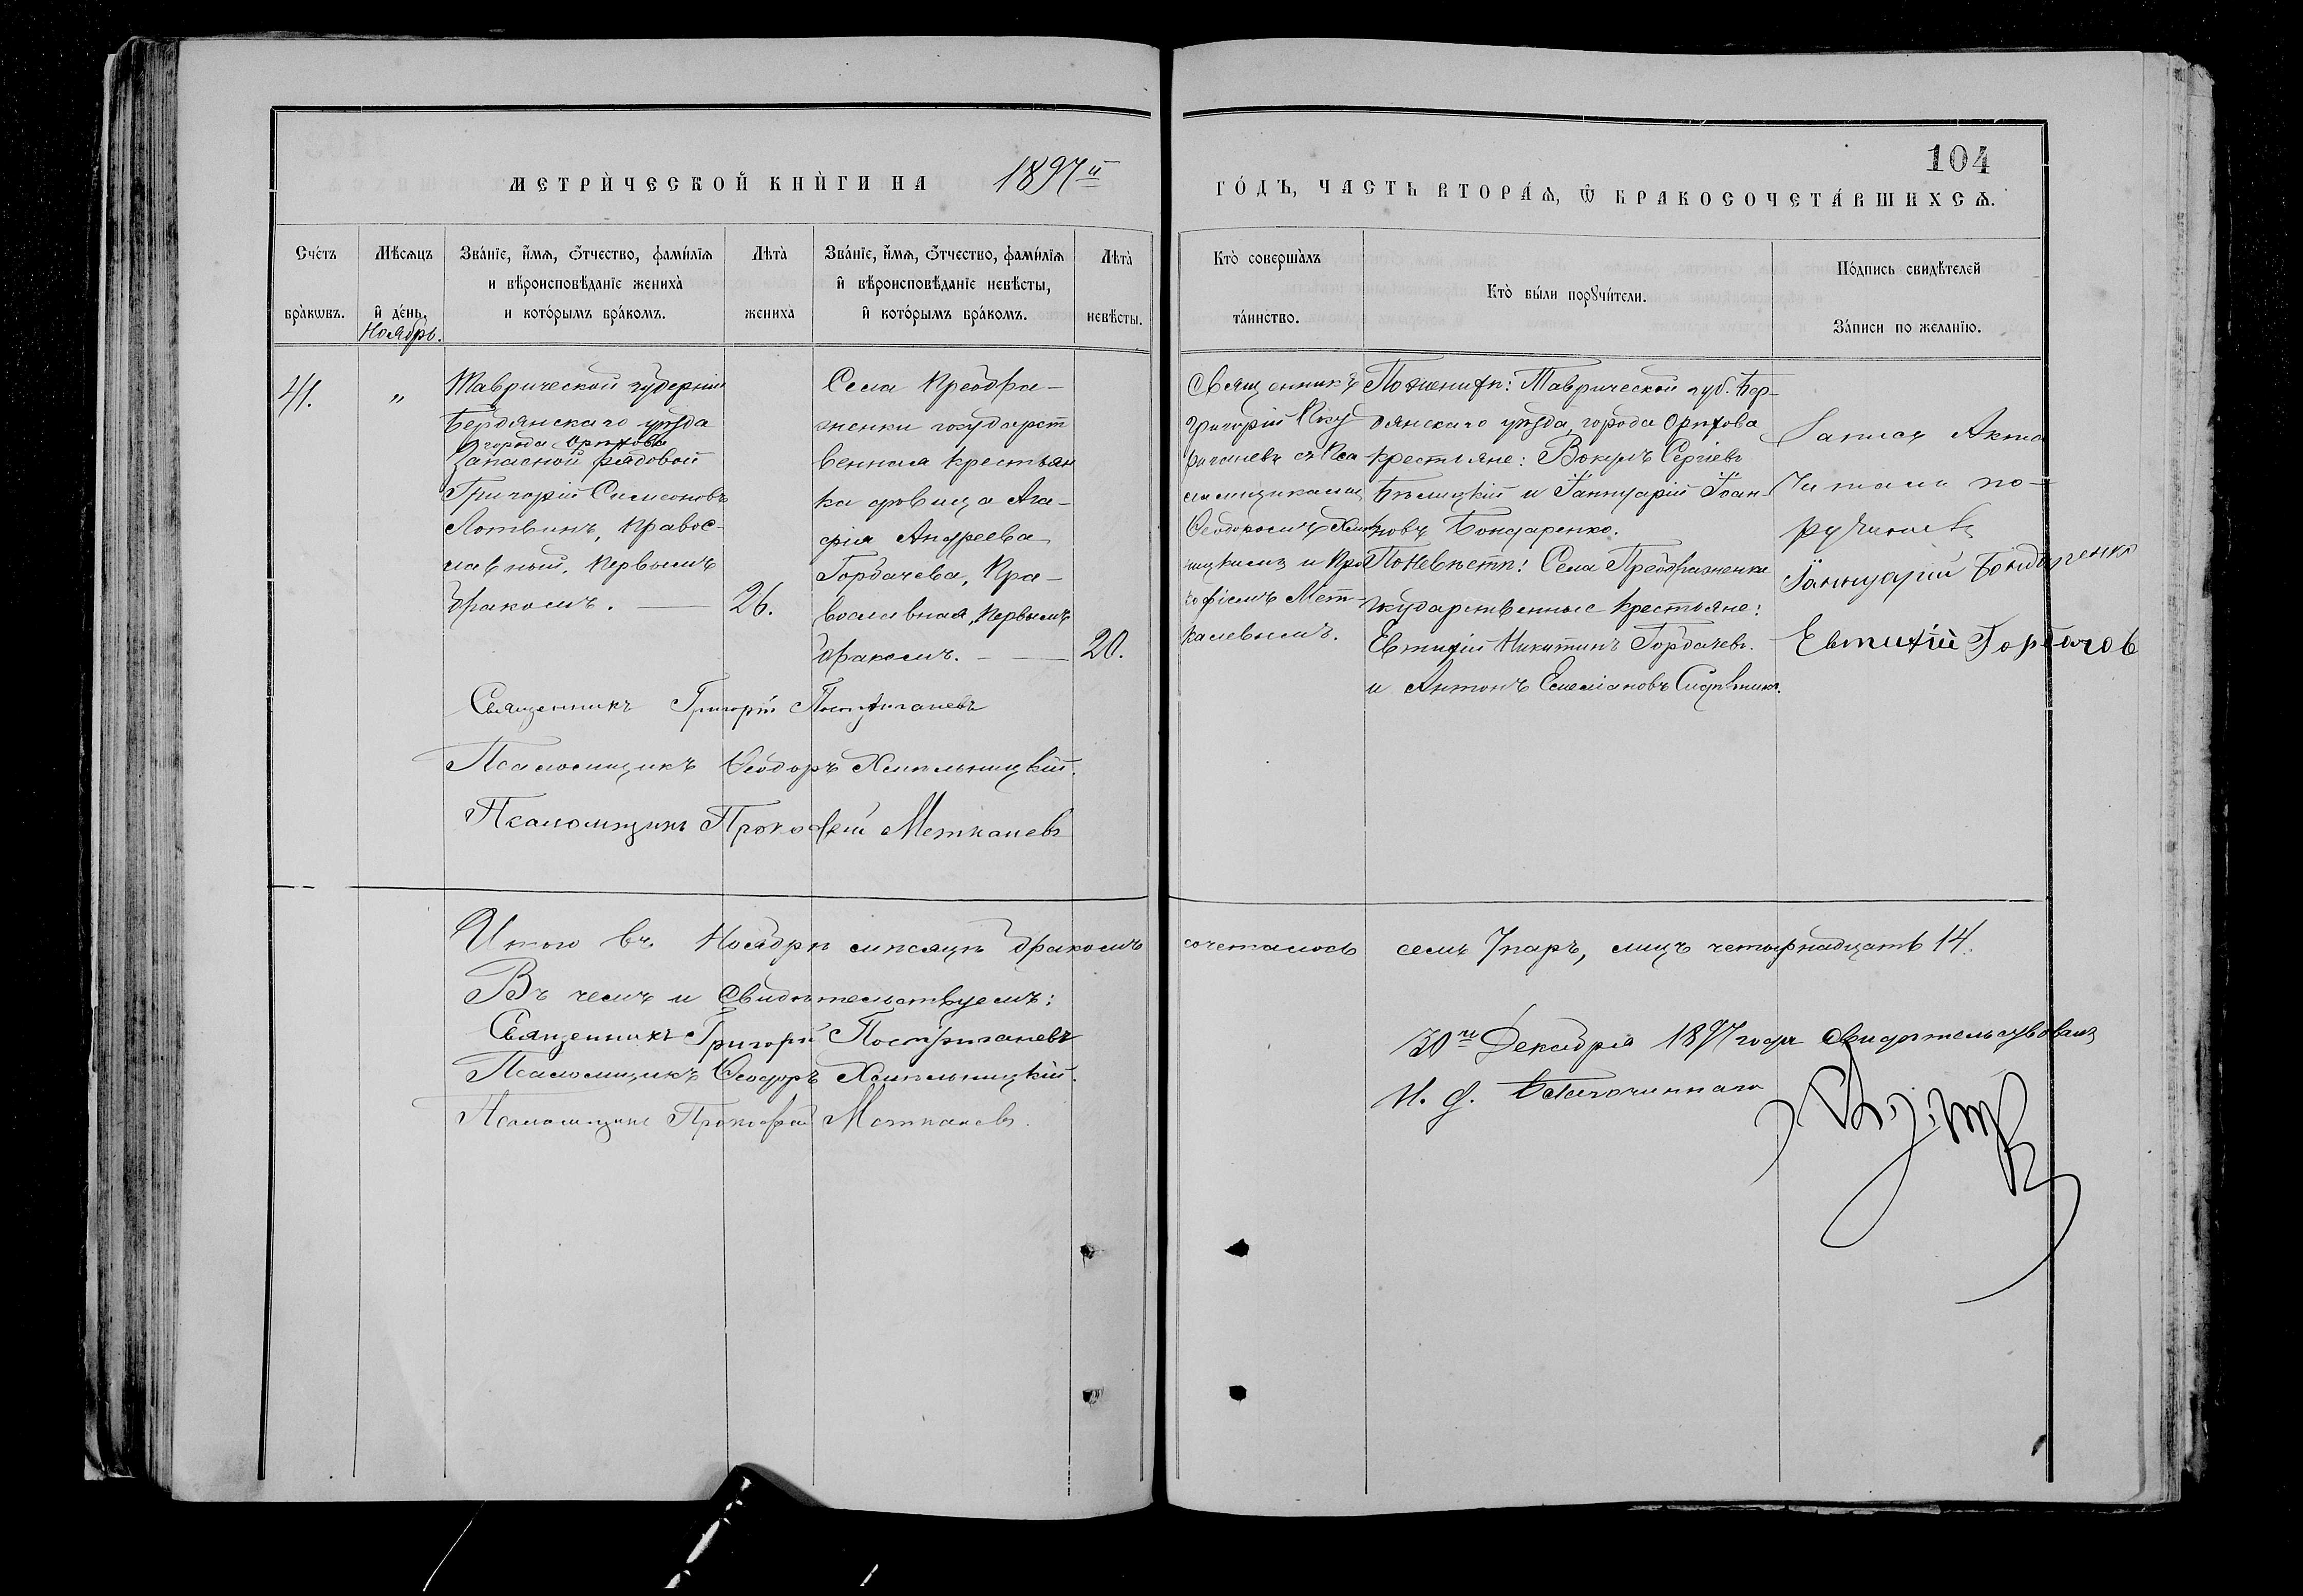 104
МЕТРИ́ЧЕСКОЙ КНИ́ГИ НА 1897й
ГО́ДЪ, ЧАСТЬ ВТОРА́Ѧ, Ѿ БРАКОСОЧЕТА́ВШИХСѦ.
Сче́тъ бра́кѡвъ.
Мѣ́сѧцъ и҆ де́нь.
Ноябрь.
Зва́нїе, и҆́мѧ, ѻ҆́тчество, фами́лїѧ
и вѣроисповѣ́данїе жениха̀
и кото́рымъ бра́комъ.
Лѣта̀ жениха̀
Зва́нїе, и҆́мѧ, ѻ҆́тчество, фами́лїѧ
и҆ вѣроисповѣ́данїе невѣ́сты,
и҆ кото́рымъ бра́комъ.
Лѣта̀ невѣ́сты.
Кто̀ соверша́лъ та́инство.
Кто̀ бы́ли порꙋчи́тели.
По́дпись свидѣ́телей
За́писи по жела́нїю.
41.
"
Таврической губерніи
Бердянскаго уѣзда
города Орѣхова
Запасной рядовой
Григорій Симеоновъ
Литвинъ, правос-
лавный, первымъ
бракомъ.
26.
Села Преобра-
женки государст
венная крестьян
ка дѣвица Ага-
фія Андреева
Горбачева, Пра-
вославная, первымъ
бракомъ.
20.
Священникъ
Григорій
съ Пса
ломщиками
Ѳеодоромъ Хмѣль
ницкимъ и Про
кофіемъ Мет-
калевымъ.
По женихѣ: Таврической губ. Бер-
дянскаго уѣзда, города Орѣхова
крестьяне: Сергіевъ
Бѣлицкій и Іаннуарій Іоан-
новъ Бондаренко.
По невѣстѣ: Села Преображенки
государственные крестьяне:
Евтихій Никитинъ Горбачевъ.
и Антонъ Емеліановъ
Запись Акта
Читали по-
ручители
Іаннуарій Бондаренко
Евтихій Горбачов
Священникъ Григорій Постригачевъ
Псаломщикъ Ѳеодоръ Хмѣльницкій.
Псаломщикъ Прокофій Меткалевъ
Итого въ Ноябрѣ мѣсяцѣ бракомъ сочеталось семь 7 паръ, лицъ четырнадцать 14.
Въ чемъ и свидѣтельствуемъ:
Священникъ Григорій Постригачевъ
Псаломщикъ Ѳеодоръ Хмѣльницкій.
Псаломщикъ Прокофій Меткалевъ.
30го Декабря 1897 года свидѣтельствовалъ
И. д. Благочиннаго